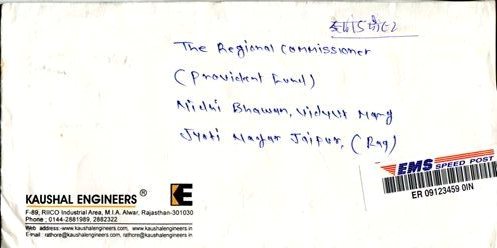 The Regional Commissioner
(Provident Fund)
Nidhi Bhawan, Vidyut Marg
Jyoti Nagar Jaipur, (Raj)
EMS SPEED POST
ER 09123459 0IN
KAUSHAL ENGINEERS®
F-89, RIICO Industrial Area, M.I.A. Alwar, Rajasthan-301030
Phone : 0144-2881989, 2882322
Web address:-www.kaushalengineers.com, www.kaushalengineers.in
E-mail rathore@kaushalengineers.com, rathore@kaushalengineers.in